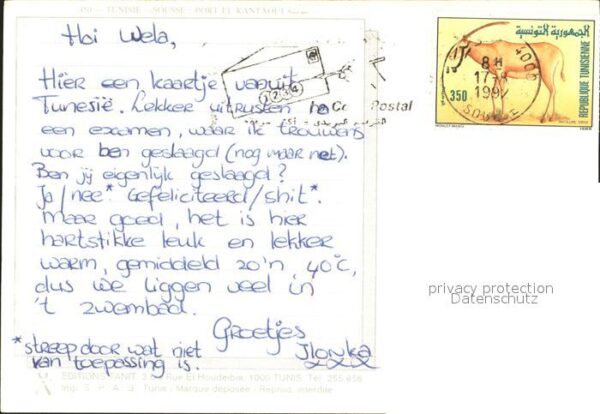 491 - TUNISIE - SOUSSE - PORT EL KANTAOUI
Hoi Wela,
Hier een kaartje vanuit
Tunesië. Lekker uitrusten na
een examen, waar ik trouwens
voor ben geslaagd (nog maar net).
Ben jij eigenlijk geslaagd?
Ja/nee* Gefeliciteerd/shit*.
Maar goed, het is hier
hartstikke leuk en lekker
warm, gemiddeld zo'n 40°C,
dus we liggen veel in
't zwembad.
Groetjes
Ilonka
*streep door wat niet
van toepassing is.
1234
Code Postal
الجمهورية التونسية
REPUBLIQUE TUNISIENNE
350
4000
8H
17-8
1992
SOUSSE
privacy protection
Datenschutz
EDITIONS TANIT
Rue El Houdeibia, 1000 TUNIS Tél.
Tunis - Marque déposée - Reprod. interdite